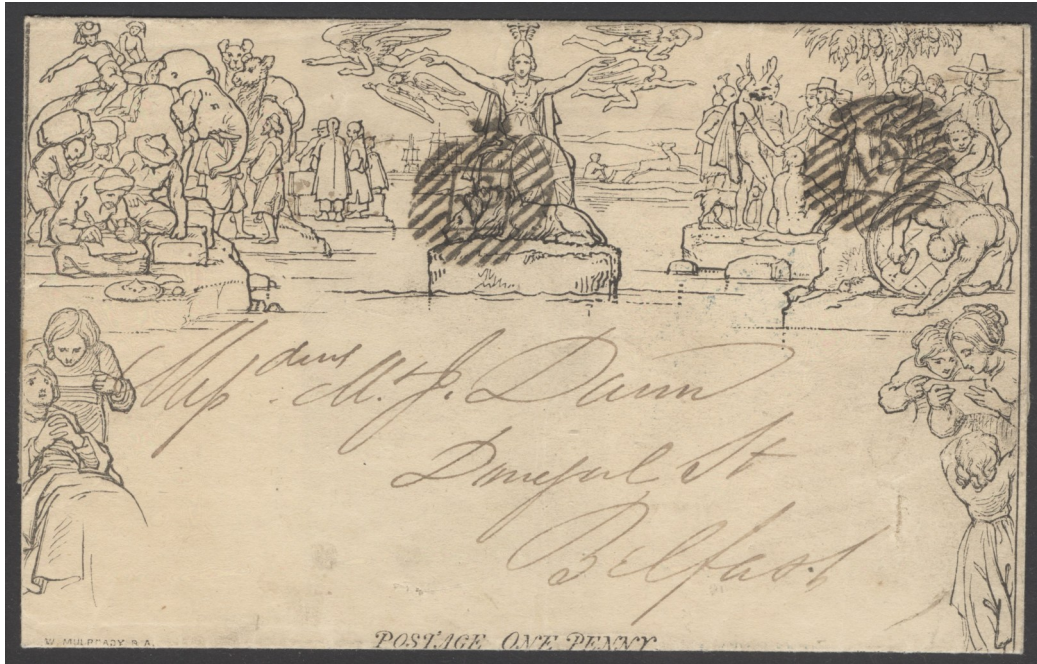 Mess
M. & J. Dunn
Donegal St
Belfast
W. MULREADY R.A.
POSTAGE ONE PENNY.